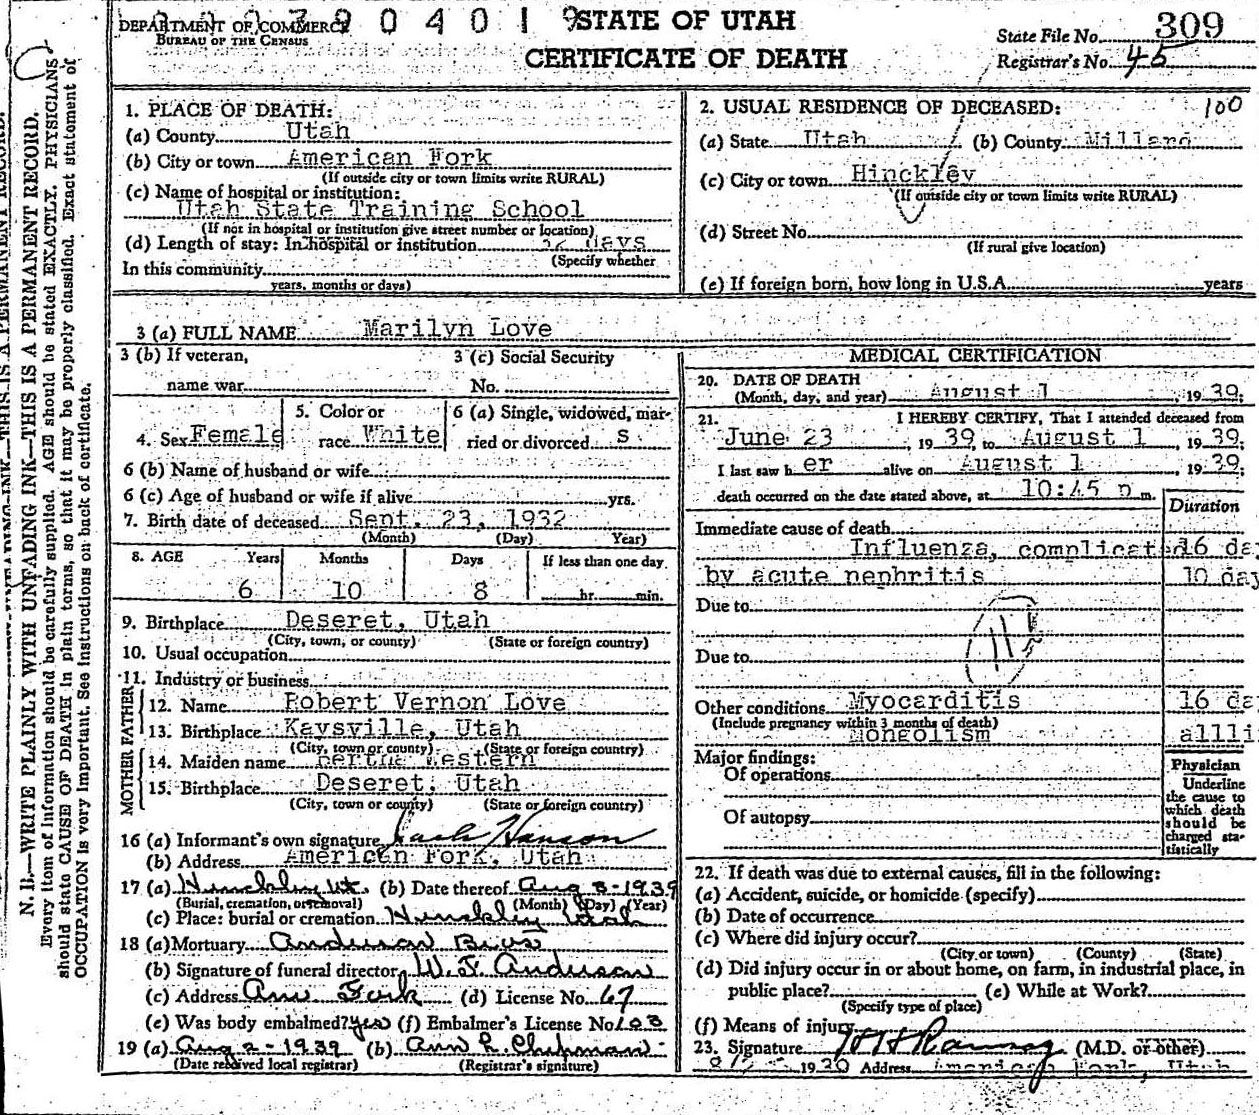 0 0 3 9 0 4 0 1 9 STATE OF UTAH
DEPARTMENT OF COMMERCE
BUREAU OF THE CENSUS
CERTIFICATE OF DEATH
State File No. 309
Registrar's No. 45
N. B.—WRITE PLAINLY WITH UNFADING INK—THIS IS A PERMANENT RECORD.
Every item of information should be carefully supplied. AGE should be stated EXACTLY. PHYSICIANS
should state CAUSE OF DEATH in plain terms, so that it may be properly classified. Exact statement of
OCCUPATION is very important. See instructions on back of certificate.
1. PLACE OF DEATH:
(a) County Utah
(b) City or town American Fork
(If outside city or town limits write RURAL)
(c) Name of hospital or institution:
Utah State Training School
(If not in hospital or institution give street number or location)
(d) Length of stay: In hospital or institution days
(Specify whether
In this community
years, months or days)
2. USUAL RESIDENCE OF DECEASED: 100
(a) State Utah (b) County Millard
(c) City or town Hinckley
(If outside city or town limits write RURAL)
(d) Street No.
(If rural give location)
(e) If foreign born, how long in U.S.A. years
3 (a) FULL NAME Marilyn Love
3 (b) If veteran,
name war
3 (c) Social Security
No.
4. Sex Female
5. Color or
race White
6 (a) Single, widowed, mar-
ried or divorced S
6 (b) Name of husband or wife
6 (c) Age of husband or wife if alive yrs.
7. Birth date of deceased Sept. 23, 1932
(Month) (Day) Year)
8. AGE Years Months Days If less than one day
6 10 8 hr. min.
9. Birthplace Deseret, Utah
(City, town, or county) (State or foreign country)
10. Usual occupation
11. Industry or business
FATHER
12. Name Robert Vernon Love
13. Birthplace Kaysville, Utah
(City, town or county) (State or foreign country)
MOTHER
14. Maiden name Bertha Western
15. Birthplace Deseret, Utah
(City, town or county) (State or foreign country)
16 (a) Informant's own signature Hanson
(b) Address American Fork, Utah
17 (a) Hinckley Ut. (b) Date thereof Aug 3-1939
(Burial, cremation, or removal) (Month) (Day) (Year)
(c) Place: burial or cremation Hinckley Utah
18 (a) Mortuary Anderson Bros
(b) Signature of funeral director W. F. Anderson
(c) Address Am Fork (d) License No. 67
(e) Was body embalmed? yes (f) Embalmer's License No. 103
19 (a) Aug 2-1939 (b) Ann R. Chipman
(Date received local registrar) (Registrar's signature)
MEDICAL CERTIFICATION
20. DATE OF DEATH
(Month, day, and year) August 1, 1939;
21. I HEREBY CERTIFY, That I attended deceased from
June 23, 1939, to August 1, 1939;
I last saw her alive on August 1, 1939;
death occurred on the date stated above, at 10:45 p m.
Duration
Immediate cause of death
Influenza, complicated 16 da
by acute nephritis 10 day
Due to
Due to
Other conditions Myocarditis 16 da
(Include pregnancy within 3 months of death)
Mongolism all li
Major findings:
Of operations
Of autopsy
Physician
Underline
the cause to
which death
should be
charged sta-
tistically
22. If death was due to external causes, fill in the following:
(a) Accident, suicide, or homicide (specify)
(b) Date of occurrence
(c) Where did injury occur?
(City or town) (County) (State)
(d) Did injury occur in or about home, on farm, in industrial place, in
public place? (e) While at Work?
(Specify type of place)
(f) Means of injury
23. Signature H H Ramsay (M.D. or other)
Address American Fork, Utah